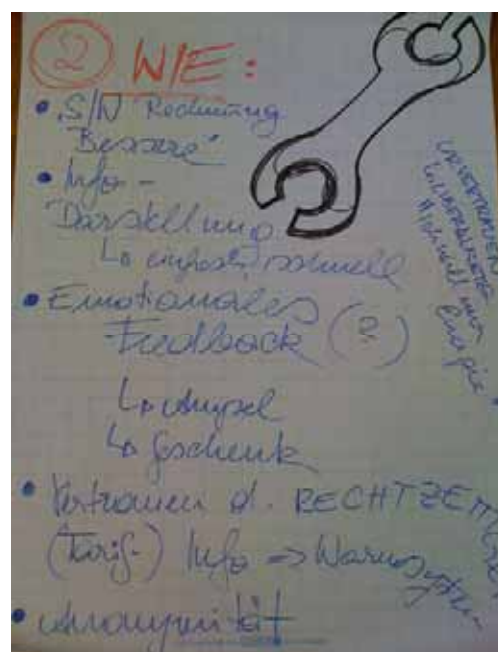 2 WIE:
• S/N Rechnung
"Bessere"
• Info -
Darstellung
↳ einfach, schnell
• Emotionales
Feedback (?)
↳ Ampel
↳ Geschenk
• Vertrauen d. RECHTZEITIGE
(Tarif-) Info => Warnsystem
• Anonymität
Energie"